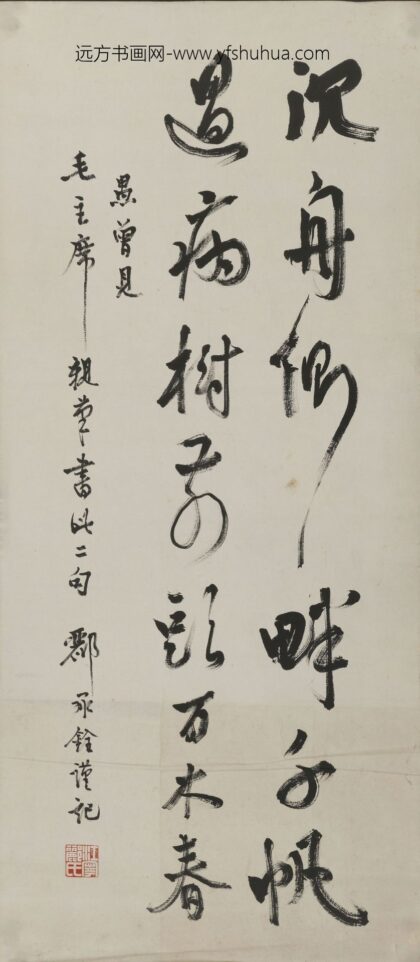 远方书画网-www.yfshuhua.com
沉舟侧畔千帆
过病树前头万木春
愚曾见
毛主席亲笔书此二句 酈承銓谨记